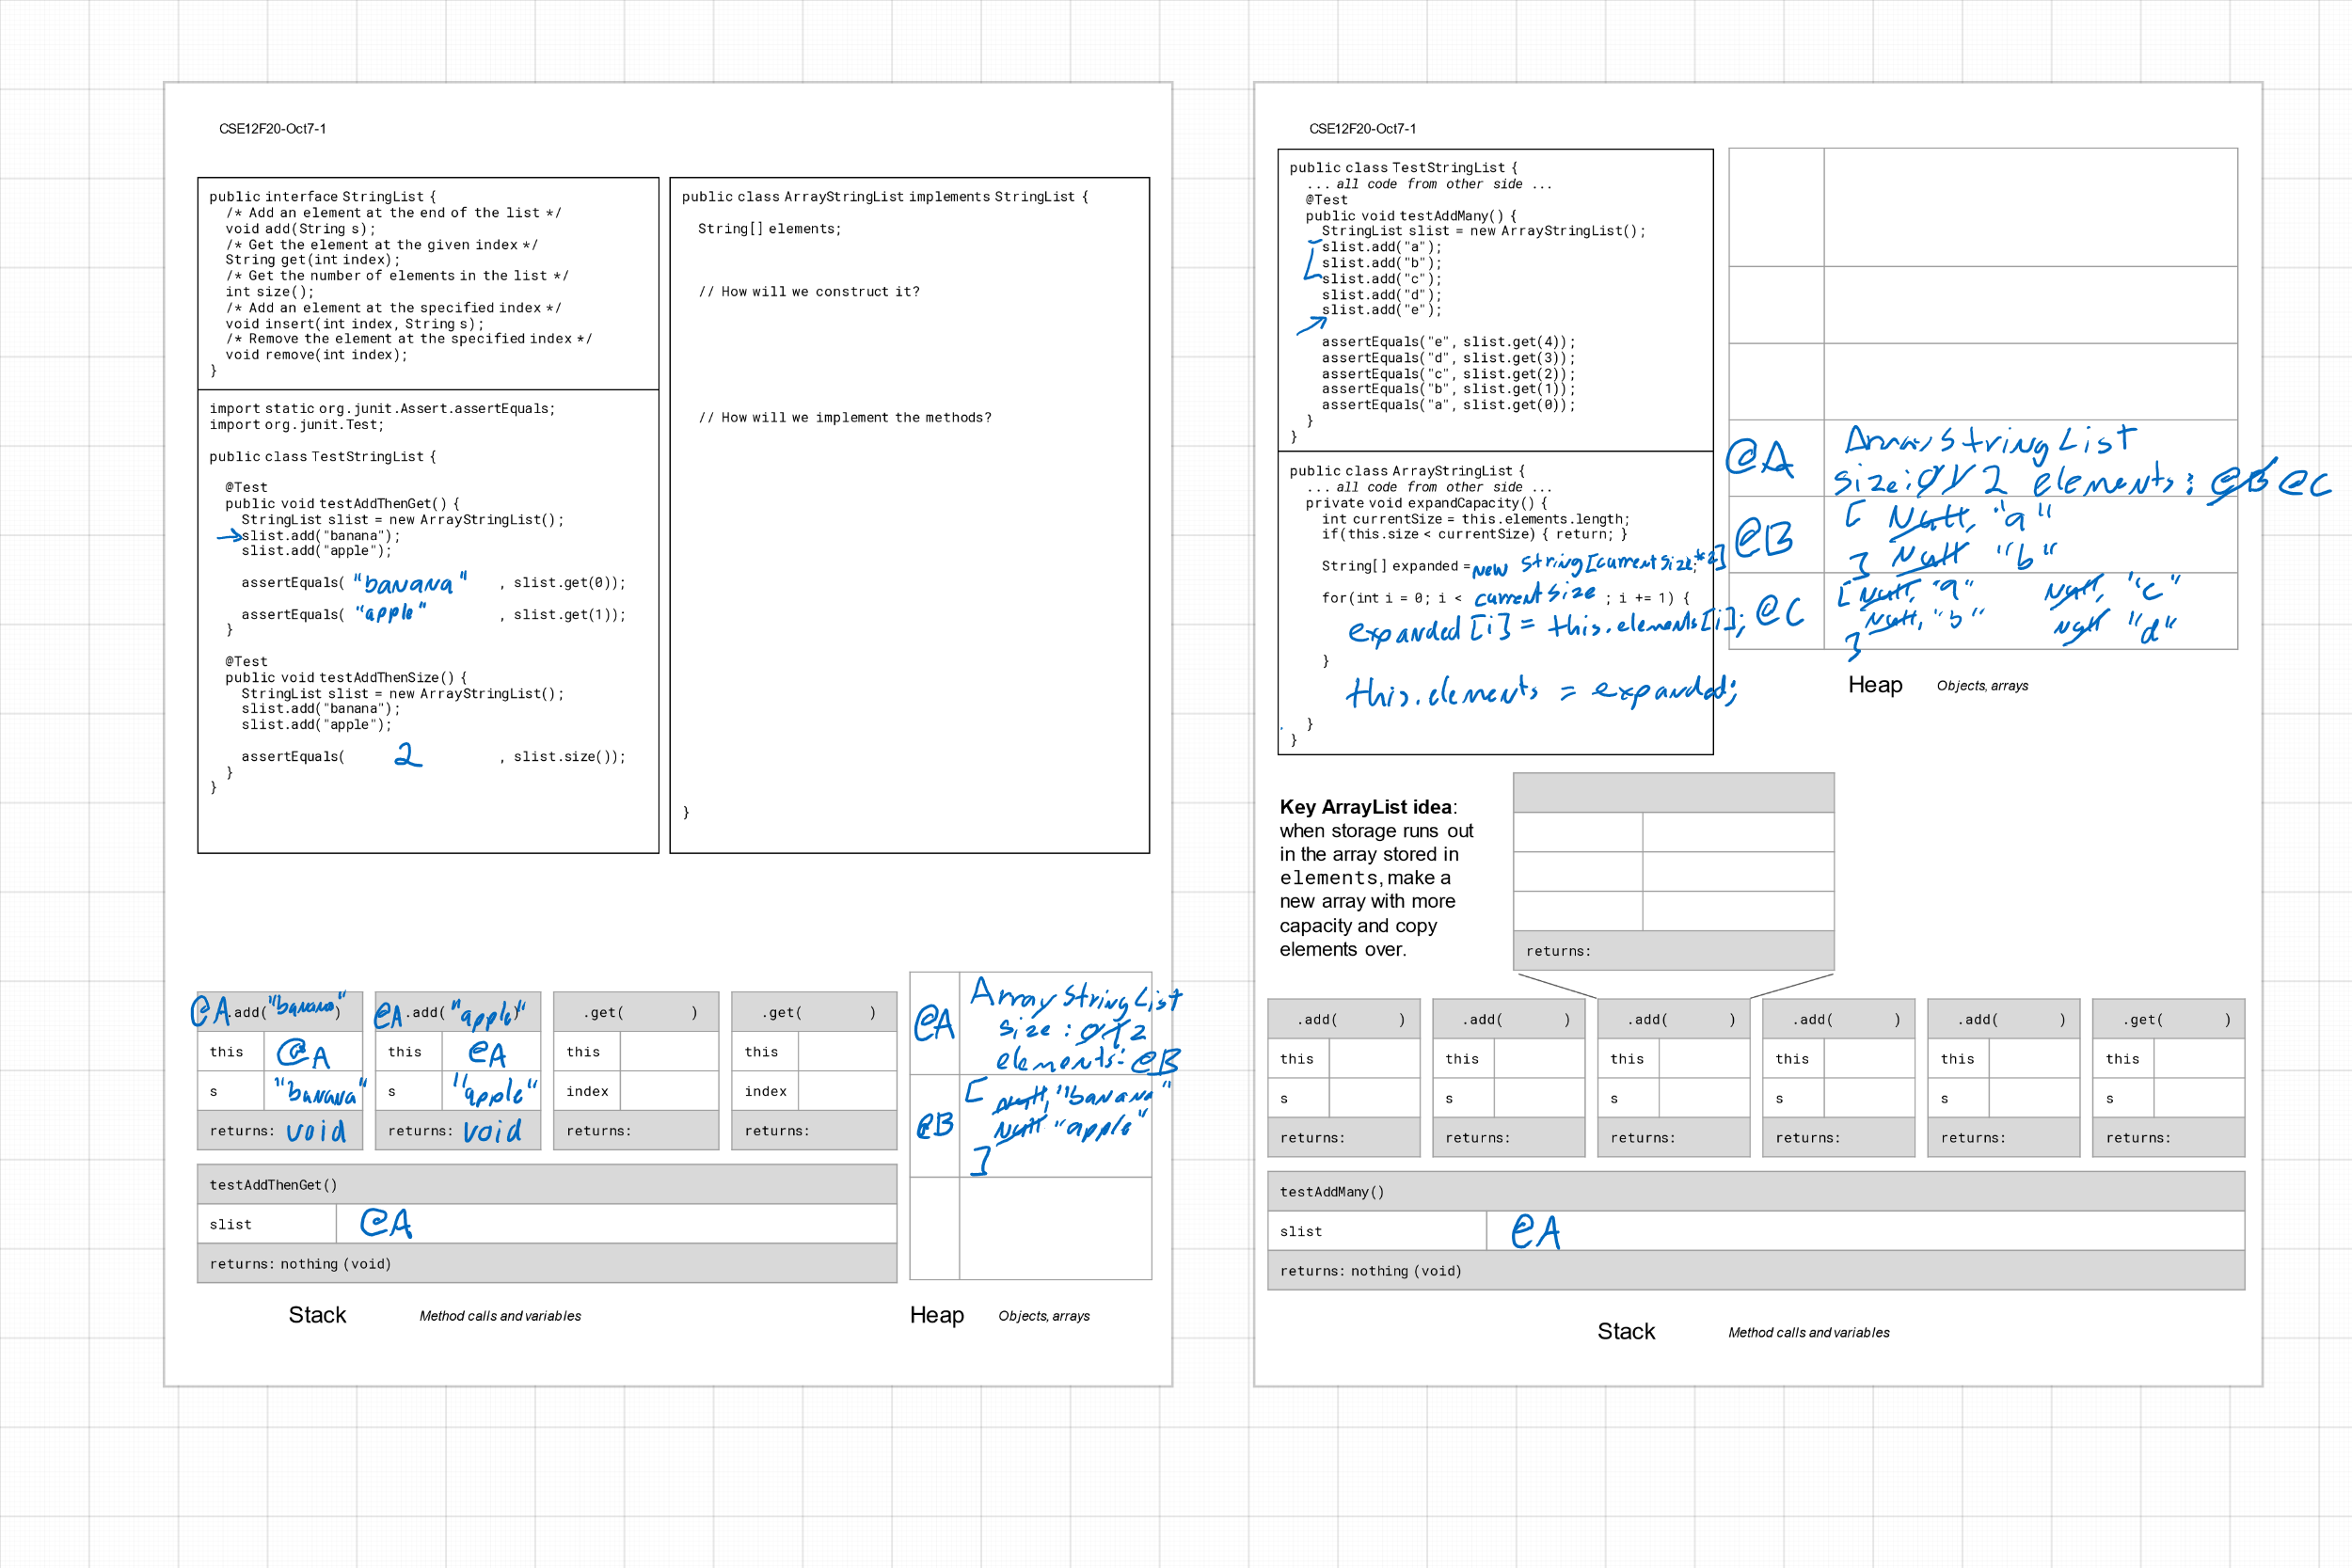 CSE12F20-Oct7-1
public interface StringList {
/* Add an element at the end of the list */
void add(String s);
/* Get the element at the given index */
String get(int index);
/* Get the number of elements in the list */
int size();
/* Add an element at the specified index */
void insert(int index, String s);
/* Remove the element at the specified index */
void remove(int index);
}
import static org.junit.Assert.assertEquals;
import org.junit.Test;
public class TestStringList {
@Test
public void testAddThenGet() {
StringList slist = new ArrayStringList();
slist.add("banana");
slist.add("apple");
assertEquals( "banana" , slist.get(0));
assertEquals( "apple" , slist.get(1));
}
@Test
public void testAddThenSize() {
StringList slist = new ArrayStringList();
slist.add("banana");
slist.add("apple");
assertEquals( 2 , slist.size());
}
}
public class ArrayStringList implements StringList {
String[] elements;
// How will we construct it?
// How will we implement the methods?
}
@A.add("banana")
this @A
s "banana"
returns: void
@A.add("apple")
this @A
s "apple"
returns: void
.get( )
this
index
returns:
.get( )
this
index
returns:
testAddThenGet()
slist @A
returns: nothing (void)
Stack Method calls and variables
@A ArrayStringList
size: 0 1 2
elements: @B
@B [ null, "banana"
null "apple"
]
Heap Objects, arrays
CSE12F20-Oct7-1
public class TestStringList {
... all code from other side ...
@Test
public void testAddMany() {
StringList slist = new ArrayStringList();
slist.add("a");
slist.add("b");
slist.add("c");
slist.add("d");
slist.add("e");
assertEquals("e", slist.get(4));
assertEquals("d", slist.get(3));
assertEquals("c", slist.get(2));
assertEquals("b", slist.get(1));
assertEquals("a", slist.get(0));
}
}
public class ArrayStringList {
... all code from other side ...
private void expandCapacity() {
int currentSize = this.elements.length;
if(this.size < currentSize) { return; }
String[] expanded = new String[currentSize*2];
for(int i = 0; i < currentSize ; i += 1) {
expanded[i] = this.elements[i];
}
this.elements = expanded;
}
}
@A ArrayStringList
size: 0 1 2 elements: @B @C
@B [ null, "a"
] null "b"
@C [ null, "a" null, "c"
null, "b" null "d"
]
Heap Objects, arrays
Key ArrayList idea:
when storage runs out
in the array stored in
elements, make a
new array with more
capacity and copy
elements over.
returns:
.add( )
this
s
returns:
.add( )
this
s
returns:
.add( )
this
s
returns:
.add( )
this
s
returns:
.add( )
this
s
returns:
.get( )
this
s
returns:
testAddMany()
slist @A
returns: nothing (void)
Stack Method calls and variables